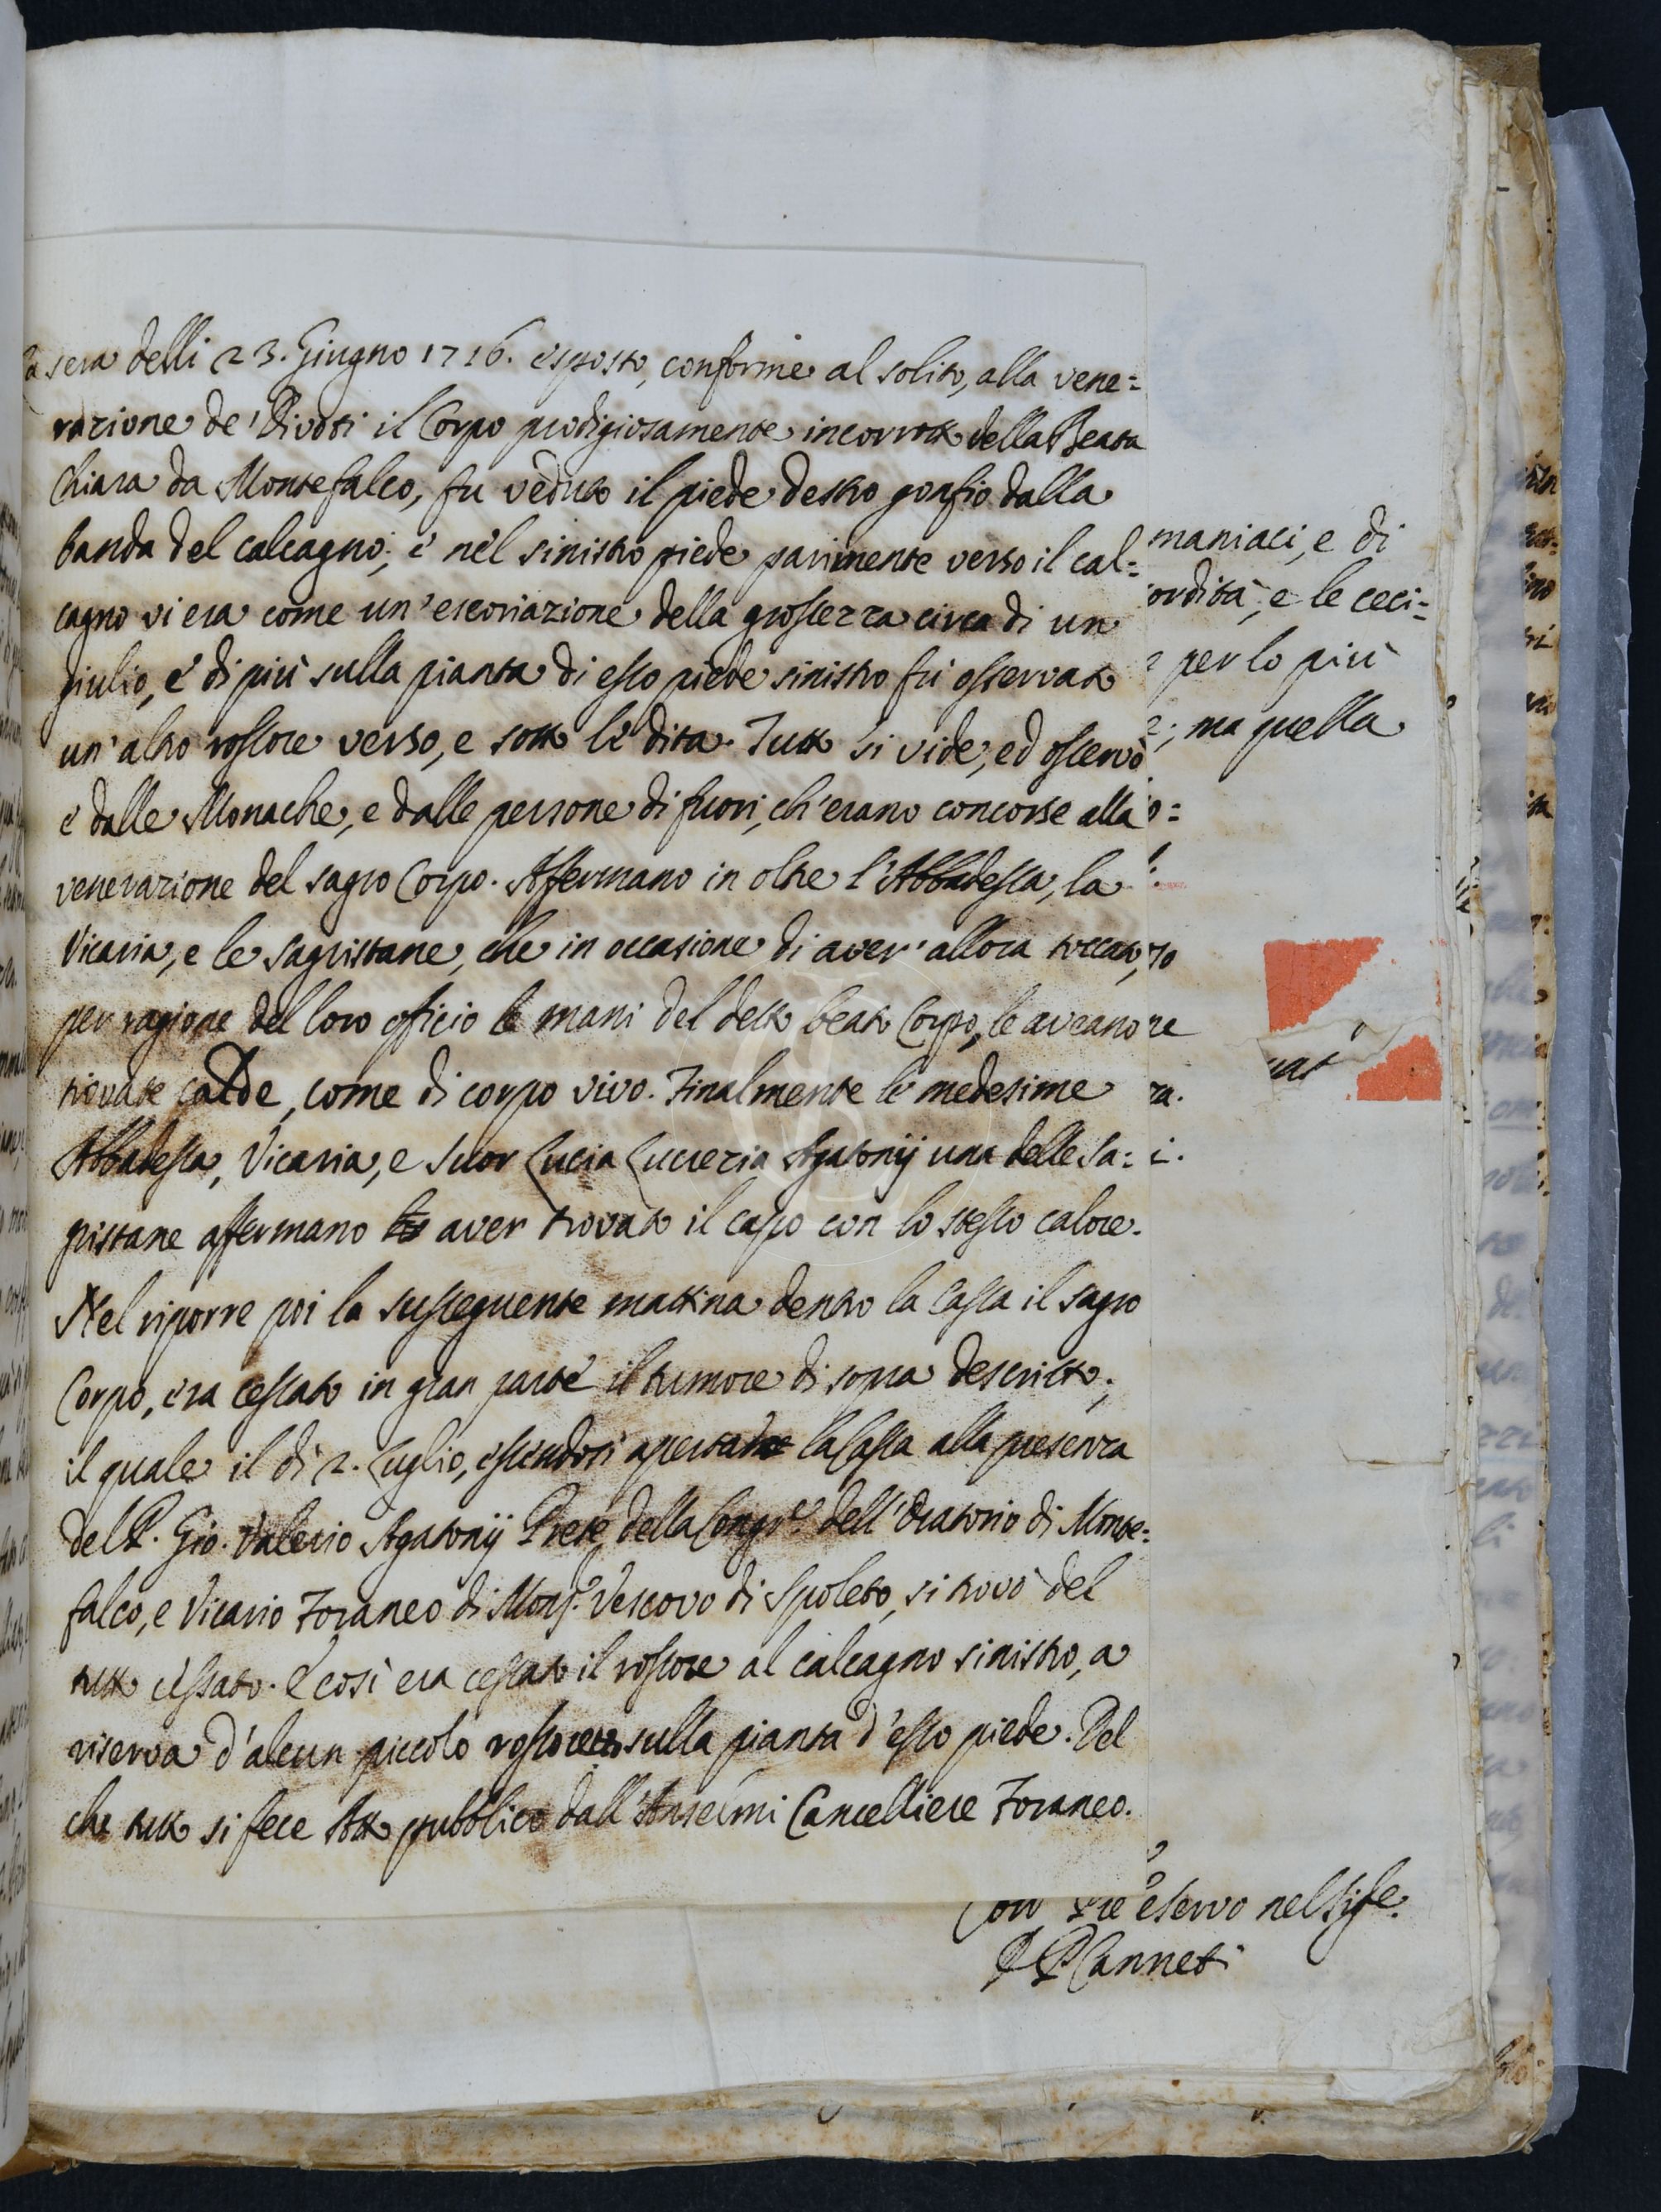 La sera delli 23. Giugno 1716. esposto, conforme al solito, alla vene=
razione de' Divoti il Corpo prodigiosamente incorrotto della Beata
Chiara da Montefalco, fu veduto il piede destro gonfio dalla
banda del calcagno; e nel sinistro piede parimente verso il cal=
cagno vi era come un'escoriazione della grossezza circa di un
giulio, e di più sulla pianta di esso piede sinistro fu osservato
un'altro rossore verso, e sotto le dita. Tutto si vide, ed osservò
e dalle Monache, e dalle persone di fuori, ch'erano concorse alla
venerazione del sagro Corpo. Affermano in oltre l'Abbadessa, la
Vicaria, e le Sagristane, che in occasione di aver'allora toccato,
per ragione del loro officio le mani del detto beato Corpo, le aveano
trovate calde, come di corpo vivo. Finalmente le medesime
Abbadessa, Vicaria, e Suor Lucia Lucrezia Agatonij una delle Sa=
gristane affermano aver trovato il capo con lo stesso calore.
Nel riporre poi la susseguente mattina dentro la Cassa il sagro
Corpo, era cessato in gran parte il tumore di sopra descritto;
il quale il dì 2. Luglio, essendosi aperta la Cassa alla presenza
del P. Gio. Valerio Agatonij Prete della Congr.e dell'Oratorio di Monte=
falco, e Vicario Foraneo di Mons.r Vescovo di Spoleto, si trovò del
tutto cessato. E così era cessato il rossore al calcagno sinistro, a
riserva d'alcun piccolo rossore sulla pianta d'esso piede. Del
che tutto si fece Atto pubblico dall'Anselmi Cancelliere Foraneo.
maniaci, e di
ordità, e le ceci=
per lo più
; ma quella
o=
to
re
ra.
i.
e servo nel Sig.e
D P Canneti